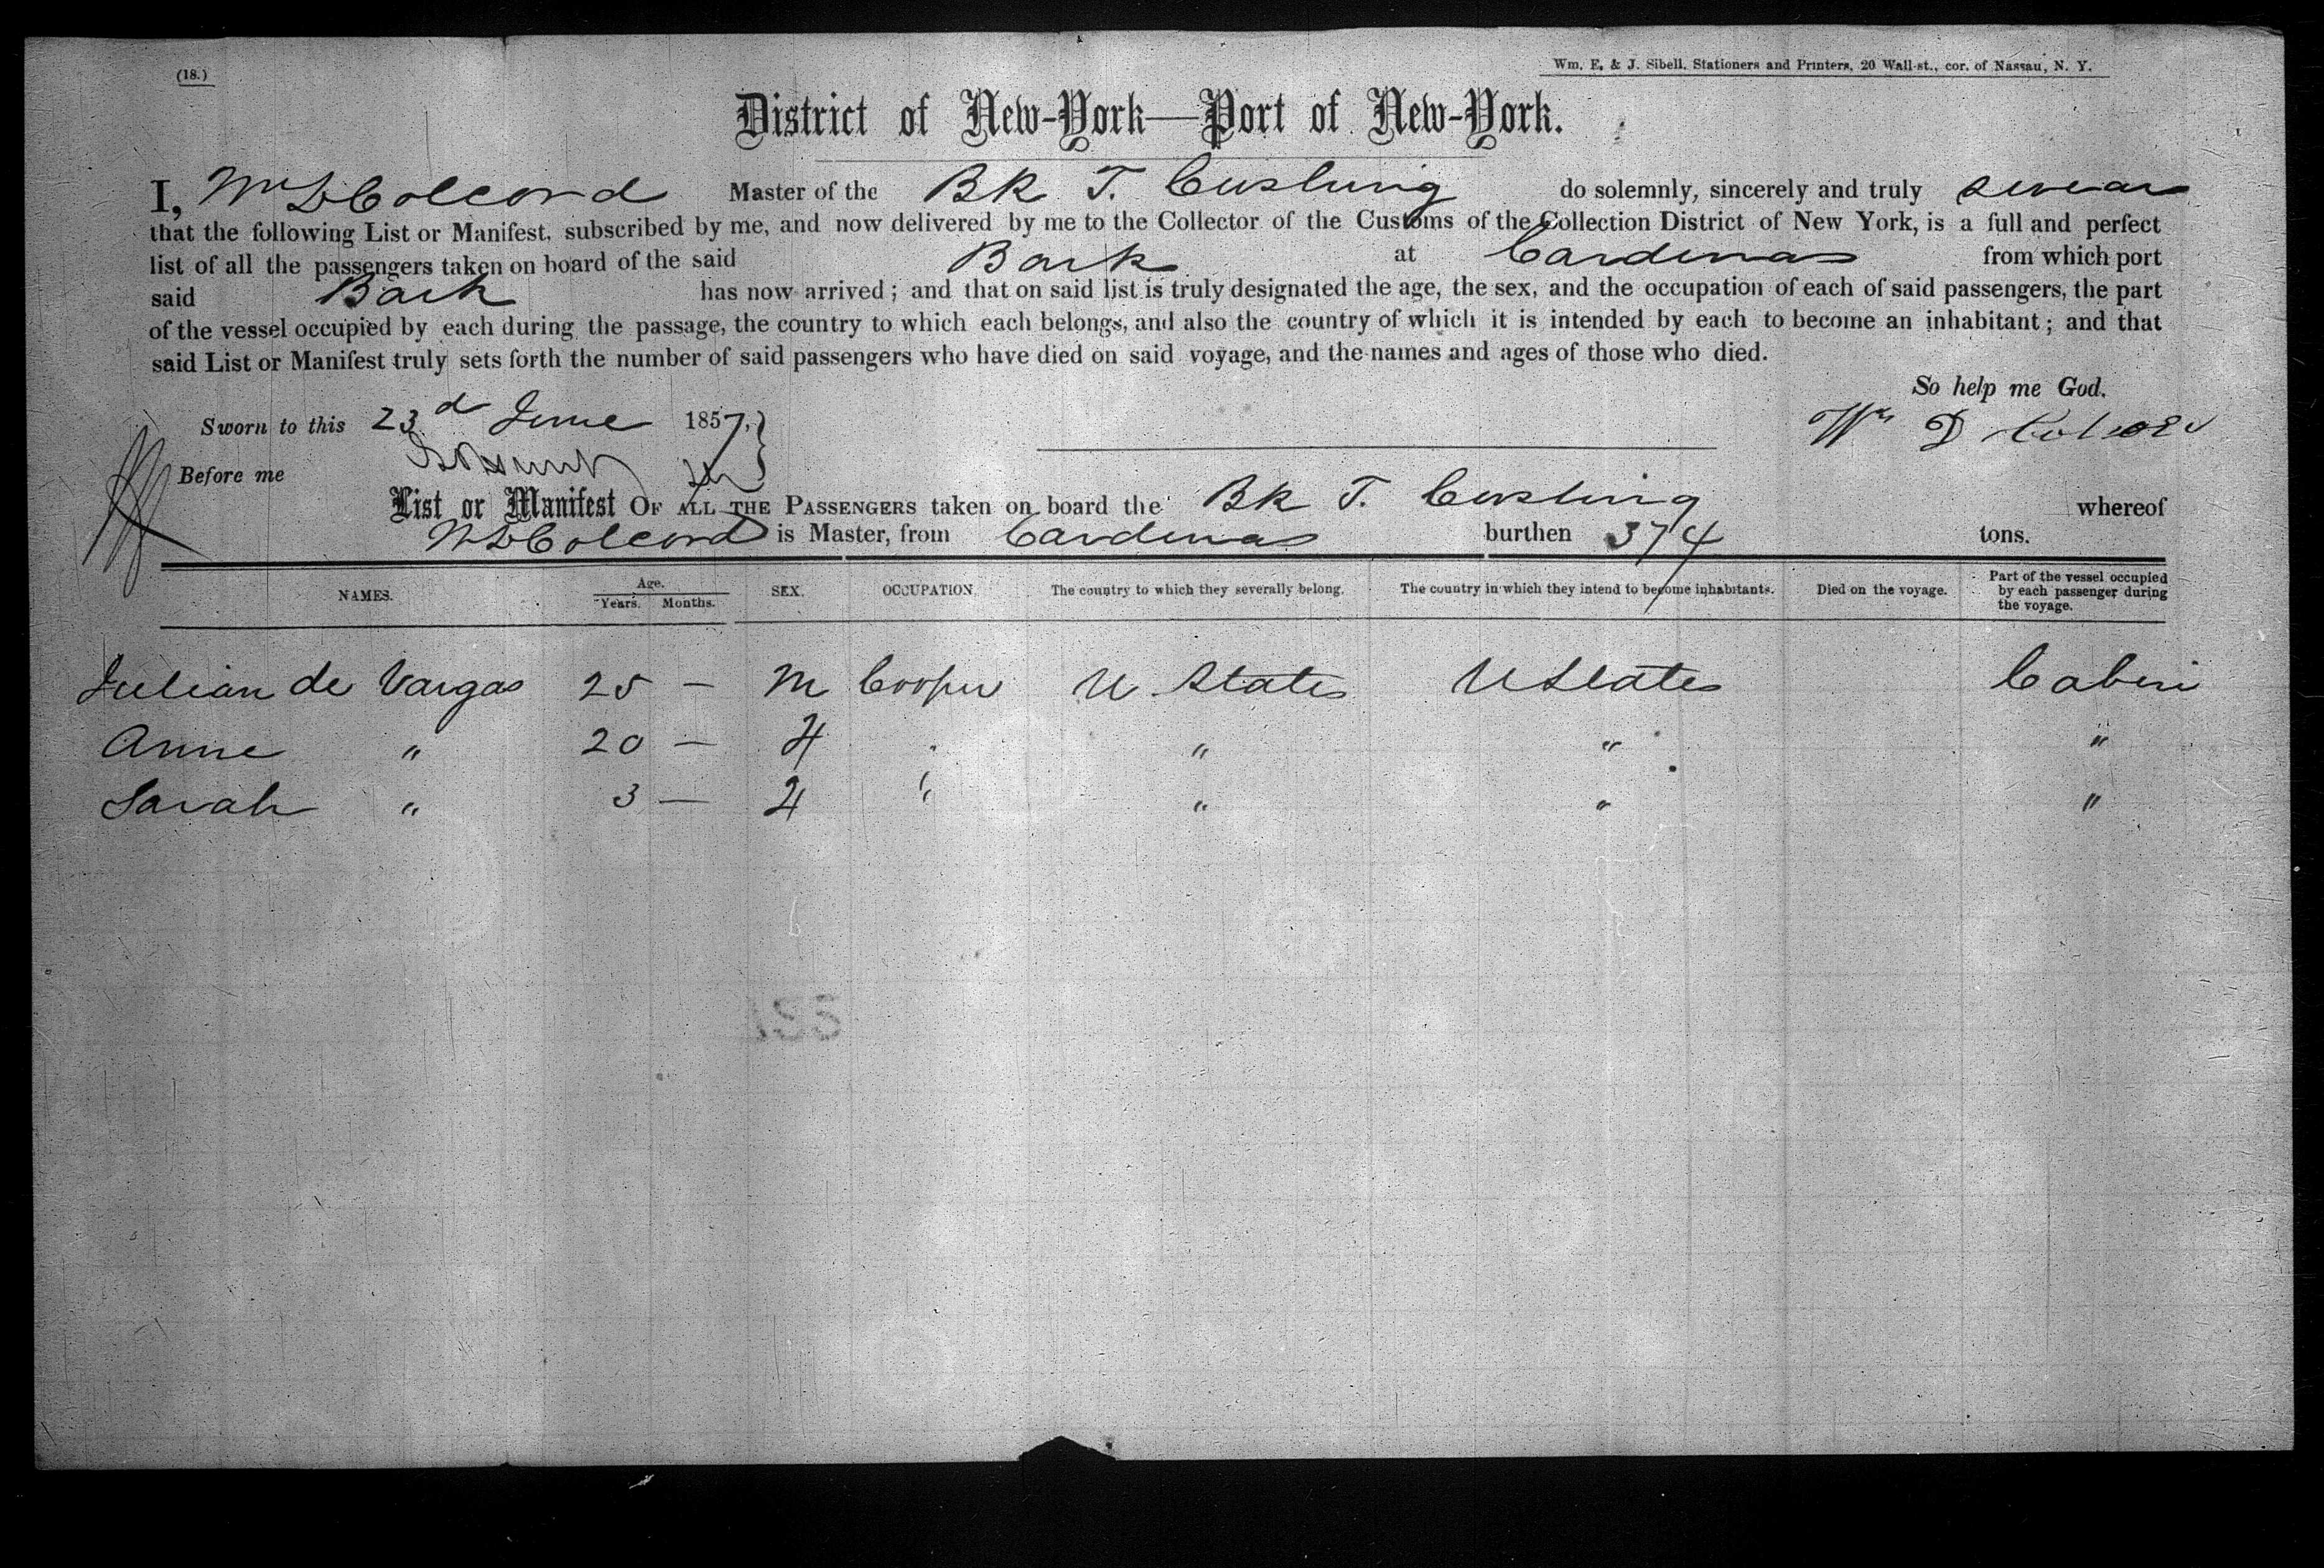 (18.)
Wm. E. & J. Sibell, Stationers and Printers, 20 Wall-st., cor. of Nassau, N. Y.
District of New-York—Port of New-York.
I, Wm D Colcord Master of the Bk T. Cushing do solemnly, sincerely and truly swear
that the following List or Manifest, subscribed by me, and now delivered by me to the Collector of the Customs of the Collection District of New York, is a full and perfect
list of all the passengers taken on board of the said Bark at Cardenas from which port
said Bark has now arrived; and that on said list is truly designated the age, the sex, and the occupation of each of said passengers, the part
of the vessel occupied by each during the passage, the country to which each belongs, and also the country of which it is intended by each to become an inhabitant; and that
said List or Manifest truly sets forth the number of said passengers who have died on said voyage, and the names and ages of those who died.
So help me God.
Sworn to this 23d June 1857,
Wm D Colcord
Before me
List or Manifest OF ALL THE PASSENGERS taken on board the Bk T. Cushing whereof
W D Colcord is Master, from Cardenas burthen 374 tons.
NAMES. Age. Years. Months. SEX. OCCUPATION. The country to which they severally belong. The country in which they intend to become inhabitants. Died on the voyage. Part of the vessel occupied by each passenger during the voyage.
Julian de Vargas 25 — M Cooper U States U States Cabin
Anne " 20 — F " " "
Sarah " 3 — F " " " "